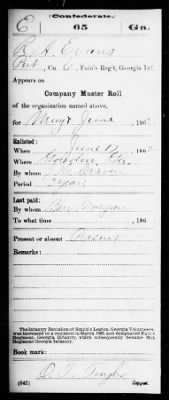 Confederate.
E 65 Ga.
R. A. Evans
Pvt, Co. C, Fain's Reg't, Georgia Inf.
Appears on
Company Muster Roll
of the organization named above,
for May & June, 186
Enlisted:
When June 186
Where
By whom
Period 3 years
Last paid:
By whom Morgan
To what time , 186
Present or absent Present
Remarks:
The Infantry Battalion of Smith's Legion, Georgia Volunteers,
was increased to a regiment in March, 1863, and designated Fain's
Regiment, Georgia Infantry, which subsequently became 65th
Regiment Georgia Infantry.
Book mark:
(642) Copyist.